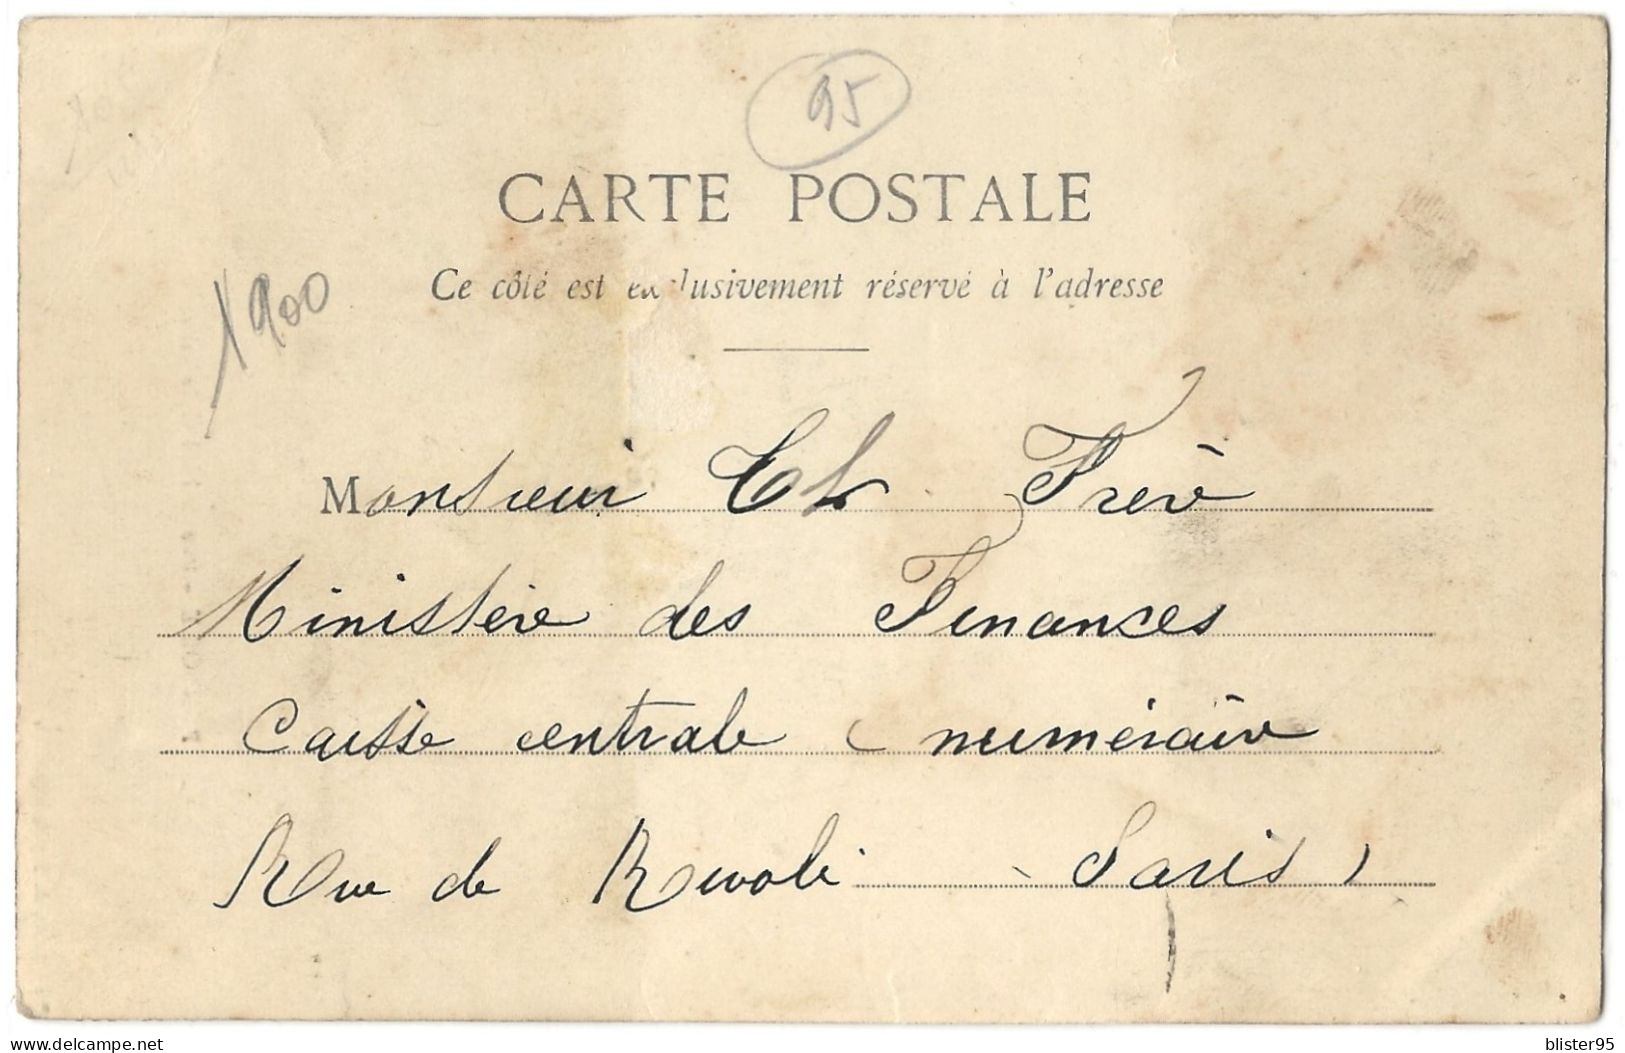 95
CARTE POSTALE
Ce côté est exclusivement réservé à l'adresse
1900
Monsieur Ch Frère
Ministère des Finances
Caisse centrale (numéraire
Rue de Rivoli Paris)
www.delcampe.net
blister95